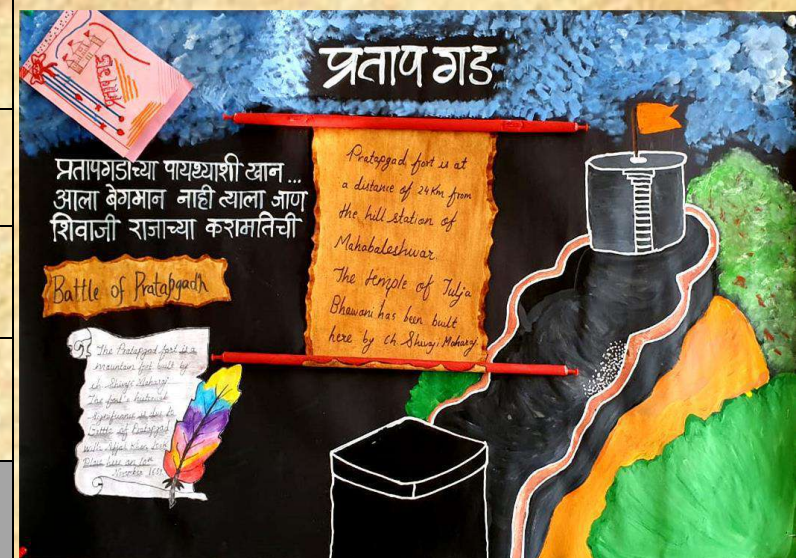 प्रतापगड
प्रतापगड
प्रतापगडाच्या पायथ्याशी खान ...
आला बेगमान नाही त्याला जाण
शिवाजी राजाच्या करामतिची
Pratapgad fort is at
a distance of 24 Km from
the hill station of
Mahabaleshwar.
The temple of Tulja
Bhawani has been built
here by Ch. Shivaji Maharaj
Battle of Pratapgadh
The Pratapgad fort is a
mountain fort built by
ch. Shivaji Maharaj
The fort's historical
significance is due to
Battle of Pratapgad
with Afjal khan took
Place here on 10th
November 1659